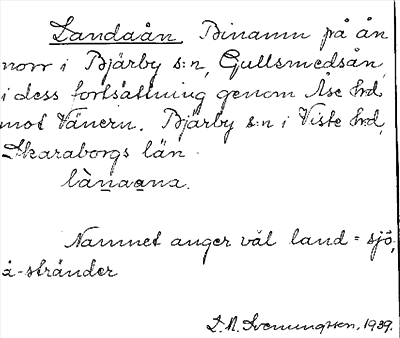 Landaån Binamn på ån
norr i Bjärby s:n, Gullsmedsån,
i dess fortsättning genom Åse hd
mot Vänern. Bjärby s:n i Viste hd,
Skaraborgs län.
lànaana.
Namnet anger väl land = sjö-,
å-stränder
D. N. Svenungsson, 1939.